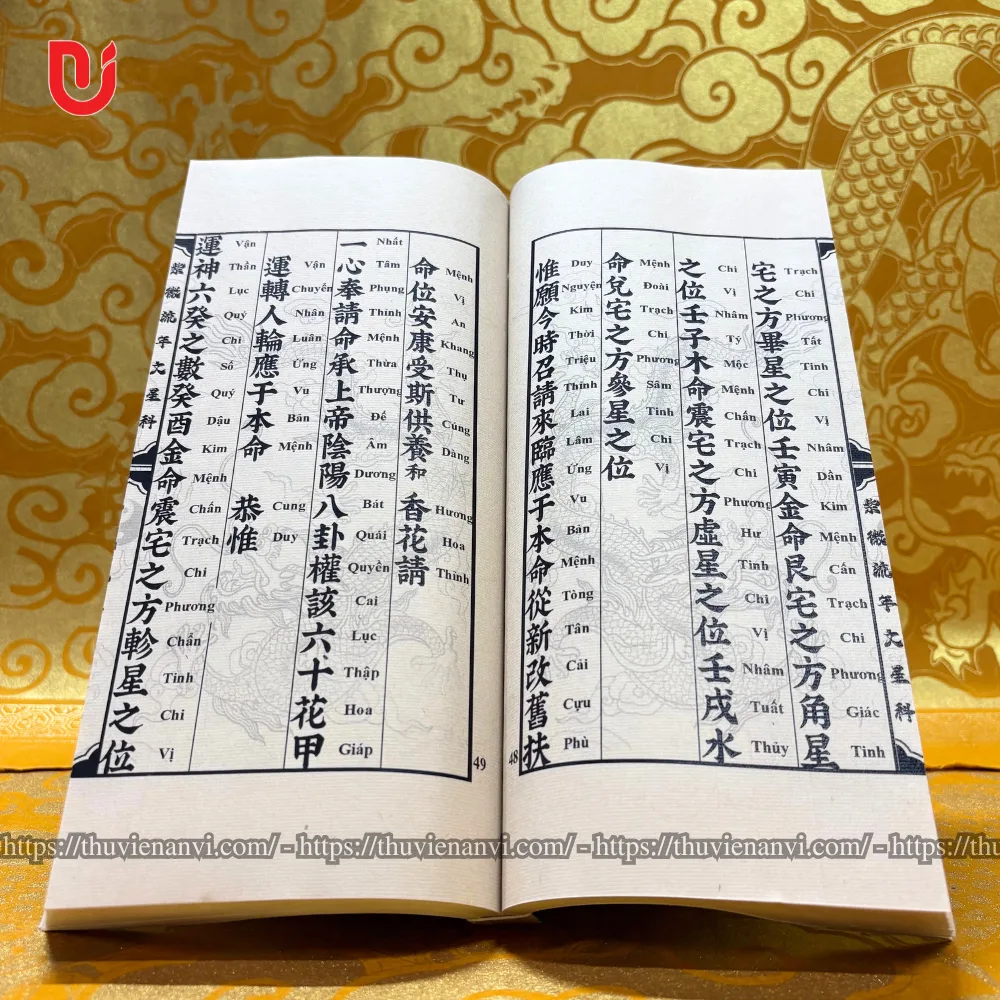 紫微流年文星科
宅之方畢星之位壬寅金命艮宅之方角星
Trạch Chi Phương Tất Tinh Chi Vị Nhâm Dần Kim Mệnh Cấn Trạch Chi Phương Giác Tinh
之位壬子木命震宅之方虛星之位壬戌水
Chi Vị Nhâm Tý Mộc Mệnh Chấn Trạch Chi Phương Hư Tinh Chi Vị Nhâm Tuất Thủy
命兌宅之方參星之位
Mệnh Đoài Trạch Chi Phương Sâm Tinh Chi Vị
惟願今時召請來臨應于本命從新改舊扶
Duy Nguyện Kim Thời Triệu Thỉnh Lai Lâm Ứng Vu Bản Mệnh Tòng Tân Cải Cựu Phù
48
命位安康受斯供養和 香花請
Mệnh Vị An Khang Thụ Tư Cúng Dàng Hương Hoa Thỉnh
一心奉請命承上帝陰陽八卦權該六十花甲
Nhất Tâm Phụng Thỉnh Mệnh Thừa Thượng Đế Âm Dương Bát Quái Quyền Cai Lục Thập Hoa Giáp
運轉人輪應于本命 恭惟
Vận Chuyển Nhân Luân Ứng Vu Bản Mệnh Cung Duy
運神六癸之數癸酉金命震宅之方軫星之位
Vận Thần Lục Quý Chi Số Quý Dậu Kim Mệnh Chấn Trạch Chi Phương Chẩn Tinh Chi Vị
紫微流年文星科
49
https://thuvienanvi.com/ - https://thuvienanvi.com/ - https://thuvienanvi.com/ - https://